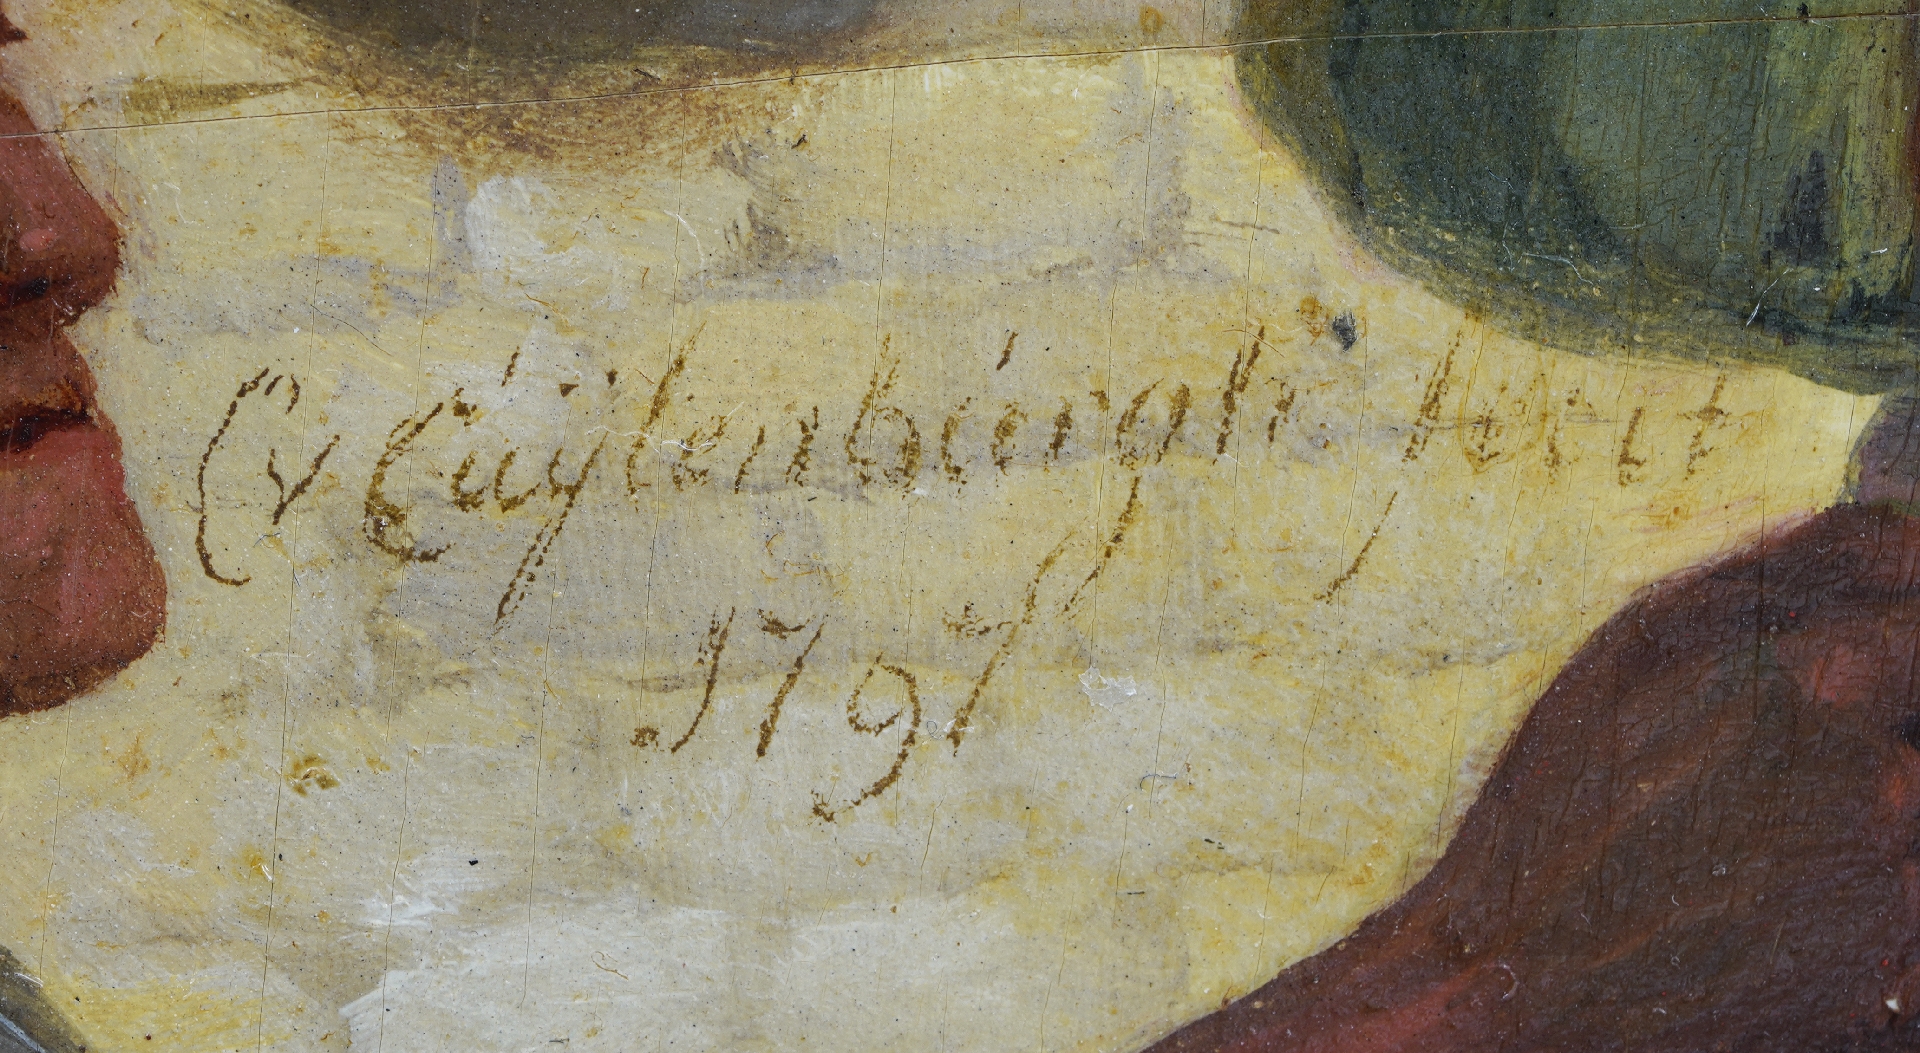 C v Cuÿlenburgh fecit
1797